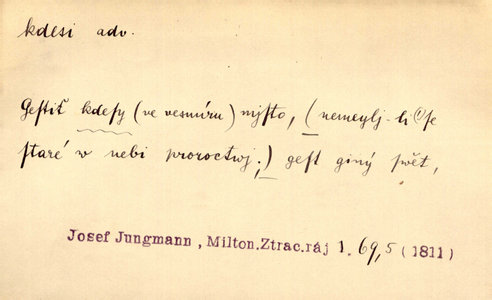 kdesi adv.
Gestiť kdesy (ve vesmíru) mjsto, (nemeylj-li se
staré w nebi proroctwj;) gest giný swět,
Josef Jungmann, Milton.Ztrac.ráj 1. 69,5 (1811)